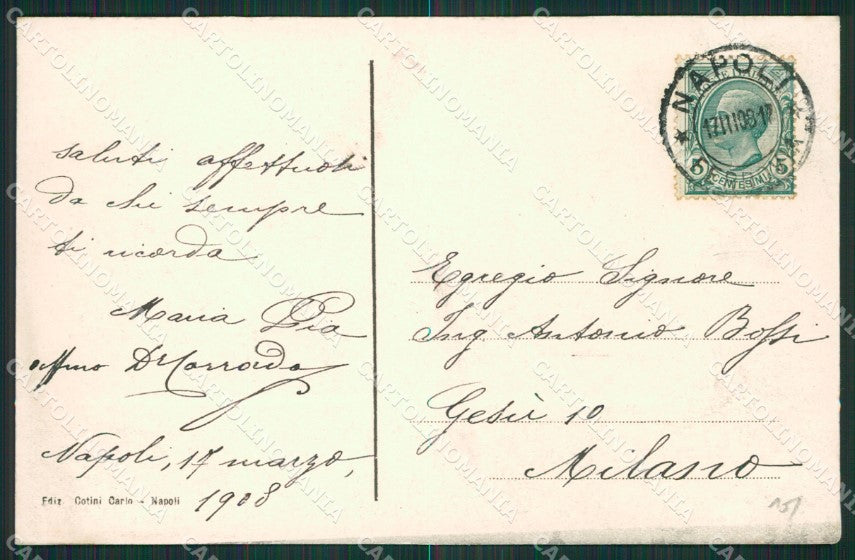 saluti affettuosi
da chi sempre
ti ricorda
Maria Pia
Napoli, 17 marzo,
1908
Ediz. Cotini Carlo - Napoli
NAPOLI
5 CENTESIMI 5
Egregio Signore
Ing Antonio Bossi
Gesù 10
Milano
CARTOLINOMANIA